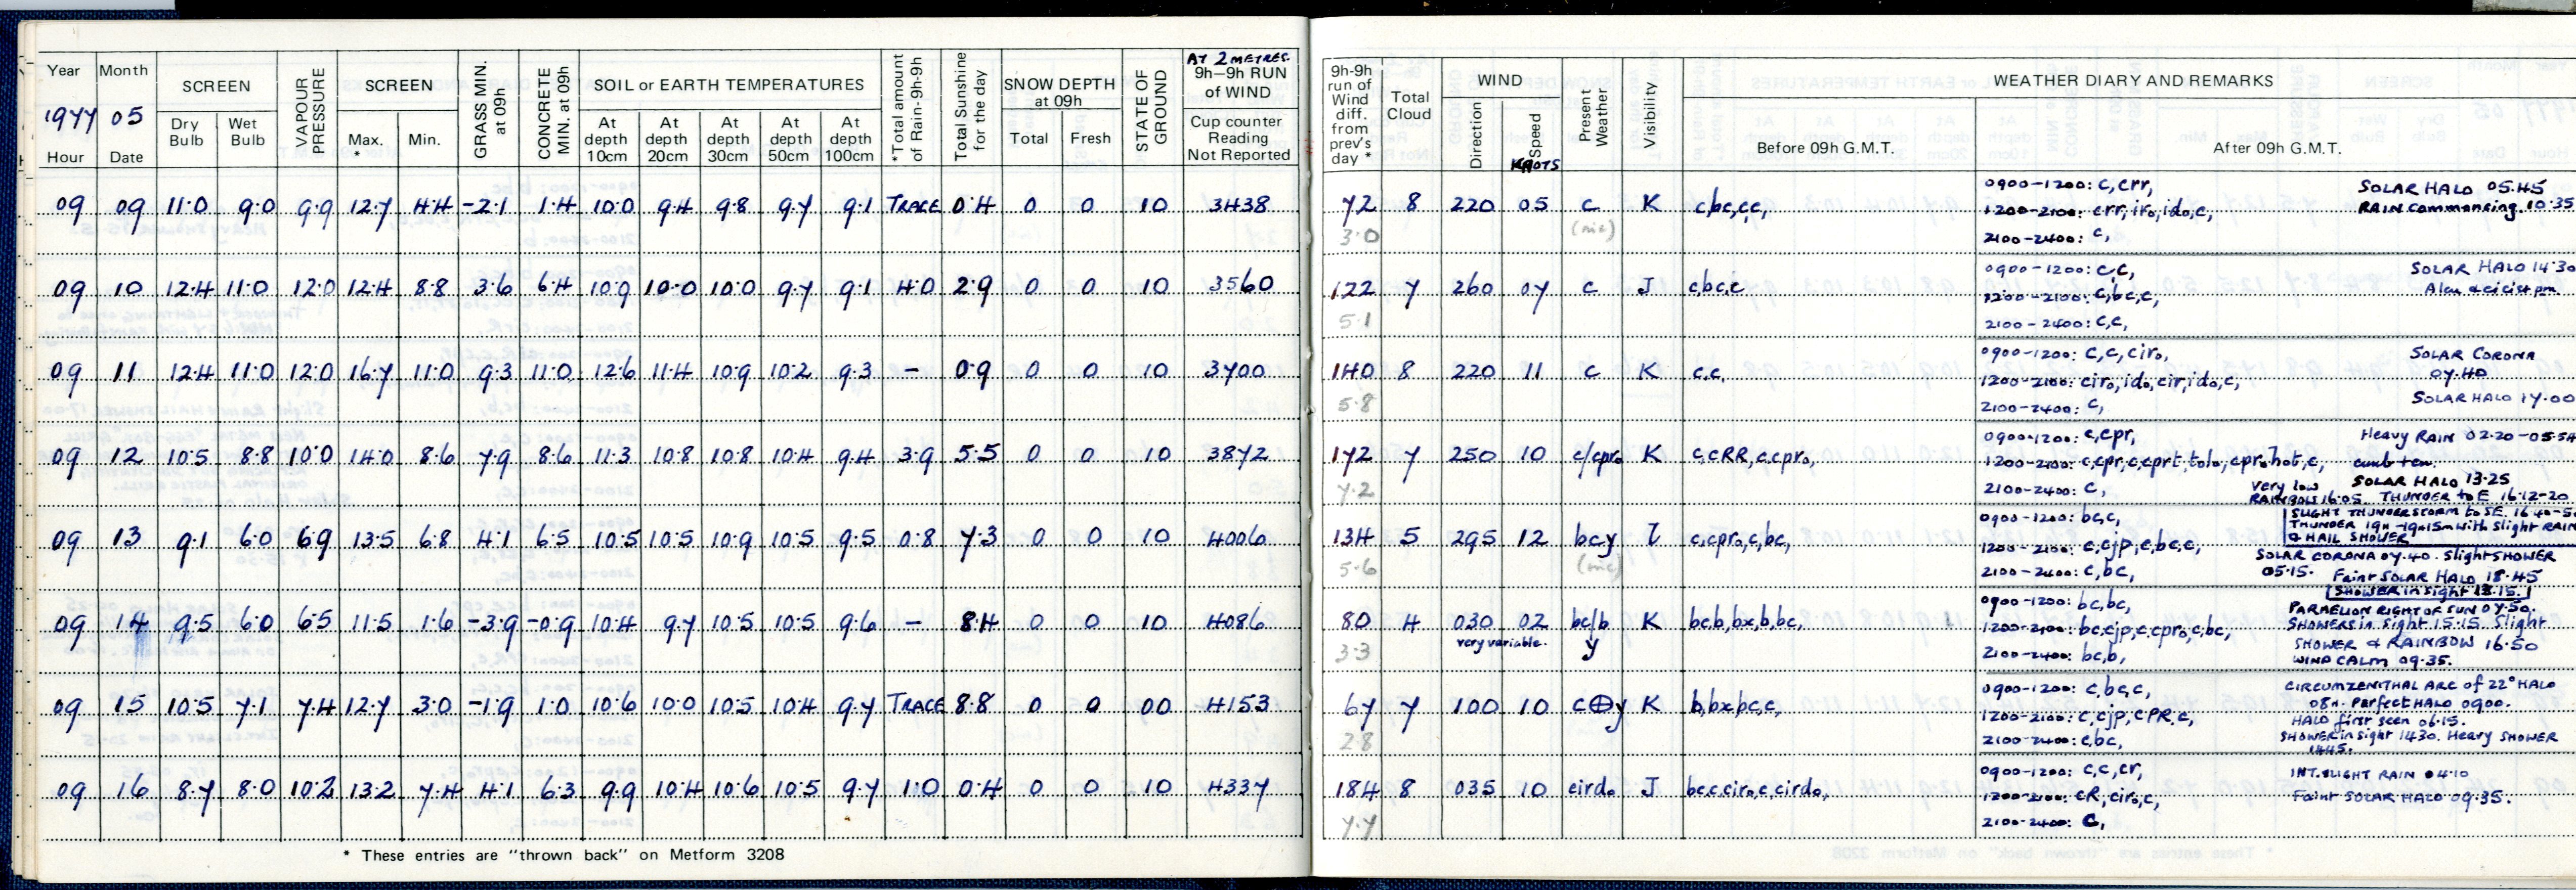 Year Month SCREEN VAPOUR PRESSURE SCREEN GRASS MIN. at 09h CONCRETE MIN. at 09h SOIL or EARTH TEMPERATURES *Total amount of Rain-9h-9h Total Sunshine for the day SNOW DEPTH at 09h STATE OF GROUND AT 2 METRES. 9h–9h RUN of WIND
1977 05 Dry Bulb Wet Bulb Max. * Min. At depth 10cm At depth 20cm At depth 30cm At depth 50cm At depth 100cm Total Fresh Cup counter Reading Not Reported
Hour Date
09 09 11.0 9.0 9.9 12.7 4.4 -2.1 1.4 10.0 9.4 9.8 9.7 9.1 TRACE 0.4 0 0 10 3438
09 10 12.4 11.0 12.0 12.4 8.8 3.6 6.4 10.9 10.0 10.0 9.7 9.1 4.0 2.9 0 0 10 3560
09 11 12.4 11.0 12.0 16.7 11.0 9.3 11.0 12.6 11.4 10.9 10.2 9.3 - 0.9 0 0 10 3700
09 12 10.5 8.8 10.0 14.0 8.6 7.9 8.6 11.3 10.8 10.8 10.4 9.4 3.9 5.5 0 0 10 3872
09 13 9.1 6.0 6.9 13.5 6.8 4.1 6.5 10.5 10.5 10.9 10.5 9.5 0.8 7.3 0 0 10 4006
09 14 9.5 6.0 6.5 11.5 1.6 -3.9 -0.9 10.4 9.7 10.5 10.5 9.6 - 8.4 0 0 10 4086
09 15 10.5 7.1 7.4 12.7 3.0 -1.9 1.0 10.6 10.0 10.5 10.4 9.7 TRACE 8.8 0 0 00 4153
09 16 8.7 8.0 10.2 13.2 7.4 4.1 6.3 9.9 10.4 10.6 10.5 9.7 1.0 0.4 0 0 10 4337
* These entries are "thrown back" on Metform 3208
9h-9h run of Wind diff. from prev's day * Total Cloud WIND Direction Speed KNOTS Present Weather Visibility WEATHER DIARY AND REMARKS
Before 09h G.M.T. After 09h G.M.T.
72 8 220 05 c K c,bc,c,c, 0900-1200: c,crr, SOLAR HALO 05.45
3.0 (mc) 1200-2100: crr,iro,ido,c, RAIN commencing. 10.35
2100-2400: c,
122 7 260 07 c J c,bc,c 0900-1200: c,c, SOLAR HALO 14.30
5.1 1200-2100: c,bc,c,
2100-2400: c,c,
140 8 220 11 c K c,c, 0900-1200: c,c,ciro, SOLAR CORONA 07.40
5.8 1200-2100: ciro,ido,cir,ido,c,
2100-2400: c, SOLAR HALO 17.00
172 7 250 10 c/cpro K c,cRR,c,cpro, 0900-1200: c,cpr, Heavy RAIN 02.20-05.54
7.2 1200-2100: c,cpr,c,cprt,tolo,cprohot,c,
2100-2400: c, SOLAR HALO 13.25
very low RAINBOW 16.05. THUNDER to E 16.12-20
134 5 295 12 bcy I c,cpro,c,bc, 0900-1200: bc,c, SLIGHT THUNDERSTORM to SE. 16.40-5
5.6 (mc) THUNDER 19h-19h15m with slight RAIN & HAIL SHOWER
1200-2100: c,cjp,c,bc,c, SOLAR CORONA 07.40. Slight SHOWER 05.15.
2100-2400: c,bc, Faint SOLAR HALO 18.45
SHOWER in sight 13.15.
80 4 030 02 bc/b y K bc,b,bx,b,bc, 0900-1200: bc,bc, PARHELION RIGHT OF SUN 07.50.
3.3 very variable. 1200-2100: bc,cjp,c,cpro,c,bc, SHOWERS in sight 15.15. Slight
2100-2400: bc,b, SHOWER & RAINBOW 16.50
WIND CALM 09.35.
67 7 100 10 c⊕y K b,bx,bc,c, 0900-1200: c,bc,c, CIRCUMZENITHAL ARC of 22° HALO
2.8 08h. Perfect HALO 0900.
1200-2100: c,cjp,cPR,c, HALO first seen 06.15.
2100-2400: c,bc, SHOWER in sight 1430. Heavy SHOWER 1445.
184 8 035 10 cirdo J bc,c,ciro,c,cirdo, 0900-1200: c,c,cr, INT.SLIGHT RAIN 04.10
7.7 1200-2100: cR,ciro,c, Faint SOLAR HALO 09.35.
2100-2400: c,